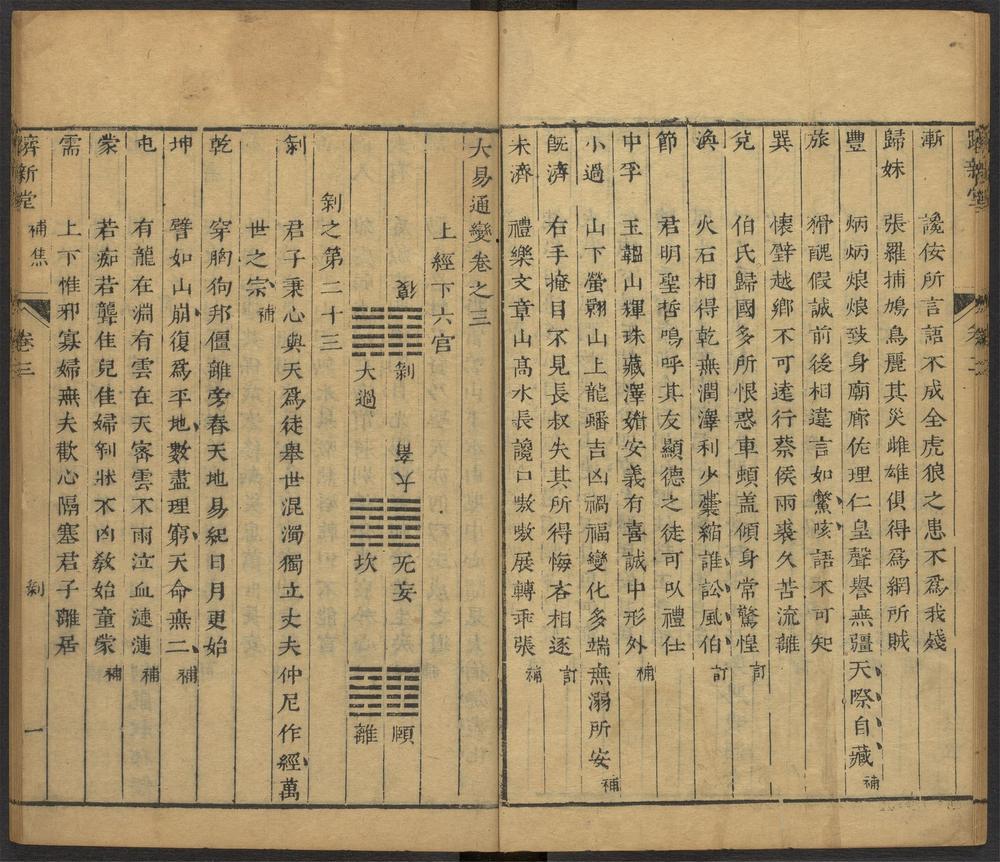 漸 讒佞所言語不成全虎狼之患不爲我殘
歸妹 張羅捕鳩鳥麗其災雌雄俱得爲網所賊
豐 炳炳烺烺致身廟廊佐理仁皇聲譽無疆天際自藏補
旅 猾醜假誠前後相違言如鱉咳語不可知
巽 懷璧越鄉不可遠行蔡侯兩裘久苦流離
兌 伯氏歸國多所恨惑車傾蓋傾身常驚惶訂
渙 火石相得乾無潤澤利少囊縮誰訟風伯訂
節 君明聖哲鳴呼其友顯德之徒可以禮仕
中孚 玉韞山輝珠藏澤媚安義有喜誠中形外補
小過 山下螢翾山上龍蟠吉凶禍福變化多端無溺所安補
旣濟 右手掩目不見長叔失其所得悔吝相逐訂
未濟 禮樂文章山高水長讒口嗷嗷展轉乖張補
大易通變卷之三
上經下六官
復 剝 大畜 无妄 頤
大過 坎 離
剝之第二十三
剝 君子秉心與天爲徒舉世混濁獨立丈夫仲尼作經萬
世之宗補
乾 穿胸狗邦僵離旁春天地易紀日月更始
坤 譬如山崩復爲平地數盡理窮天命無二補
屯 有龍在淵有雲在天密雲不雨泣血漣漣補
蒙 若痴若聾佳兒佳婦剝牀不凶敎始童蒙補
需 上下惟邪寡婦無夫歡心隔塞君子離居
躋新堂 補焦 卷三 剝 一